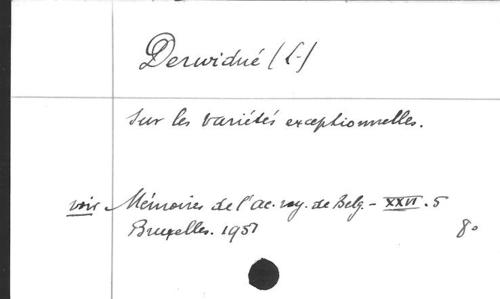 Derwidué (L.)
Sur les variétés exceptionnelles.
voir Mémoires de l'ac. roy. de Belg. - XXVI. 5
Bruxelles. 1951 8°